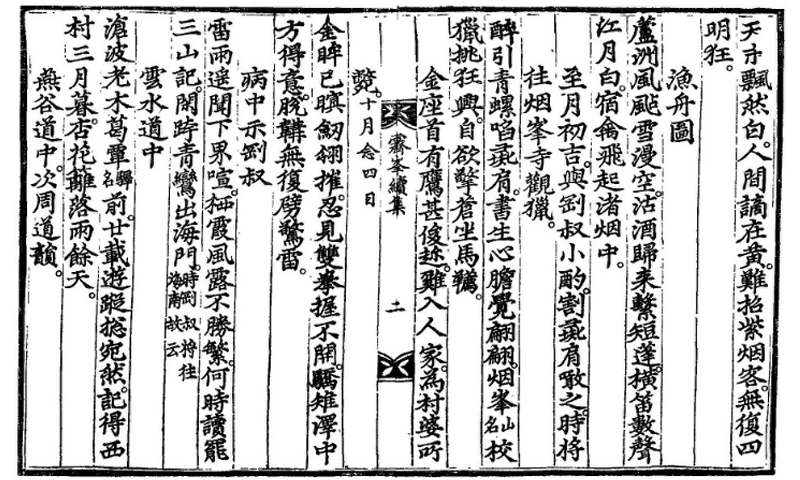 天才飄然白。人間謫在黃。難招紫烟客。無復四
明狂。
漁舟圖
蘆洲風颭雪漫空。沽酒歸來繫短蓬。橫笛數聲
江月白。宿禽飛起渚烟中。
至月初吉。與剳叔小酌。割彘肩噉之。時將
往烟峯寺觀獵。
醉引青螺啗彘肩。書生心膽覺翩翩。烟峯山名校
獵挑狂興。自欲擎蒼坐馬韉。
金座首有鷹甚俊。趂雞入人家。為村婆所
霽峯續集 二
斃。十月念四日
金眸已瞑紉翎摧。忍見雙拳握不開。驕雉澤中
方得意。脫韝無復劈驚雷。
病中示剳叔
雷雨遙聞下界喧。霞風露不勝繁。何時讀罷
三山記。閑跨青鸞出海門。時剳叔將往海南故云
雲水道中
滄波老木葛覃驛名前。廿載遊蹤捴宛然。記得西
村三月暮。杏花籬落雨餘天。
燕谷道中。次周道韻。